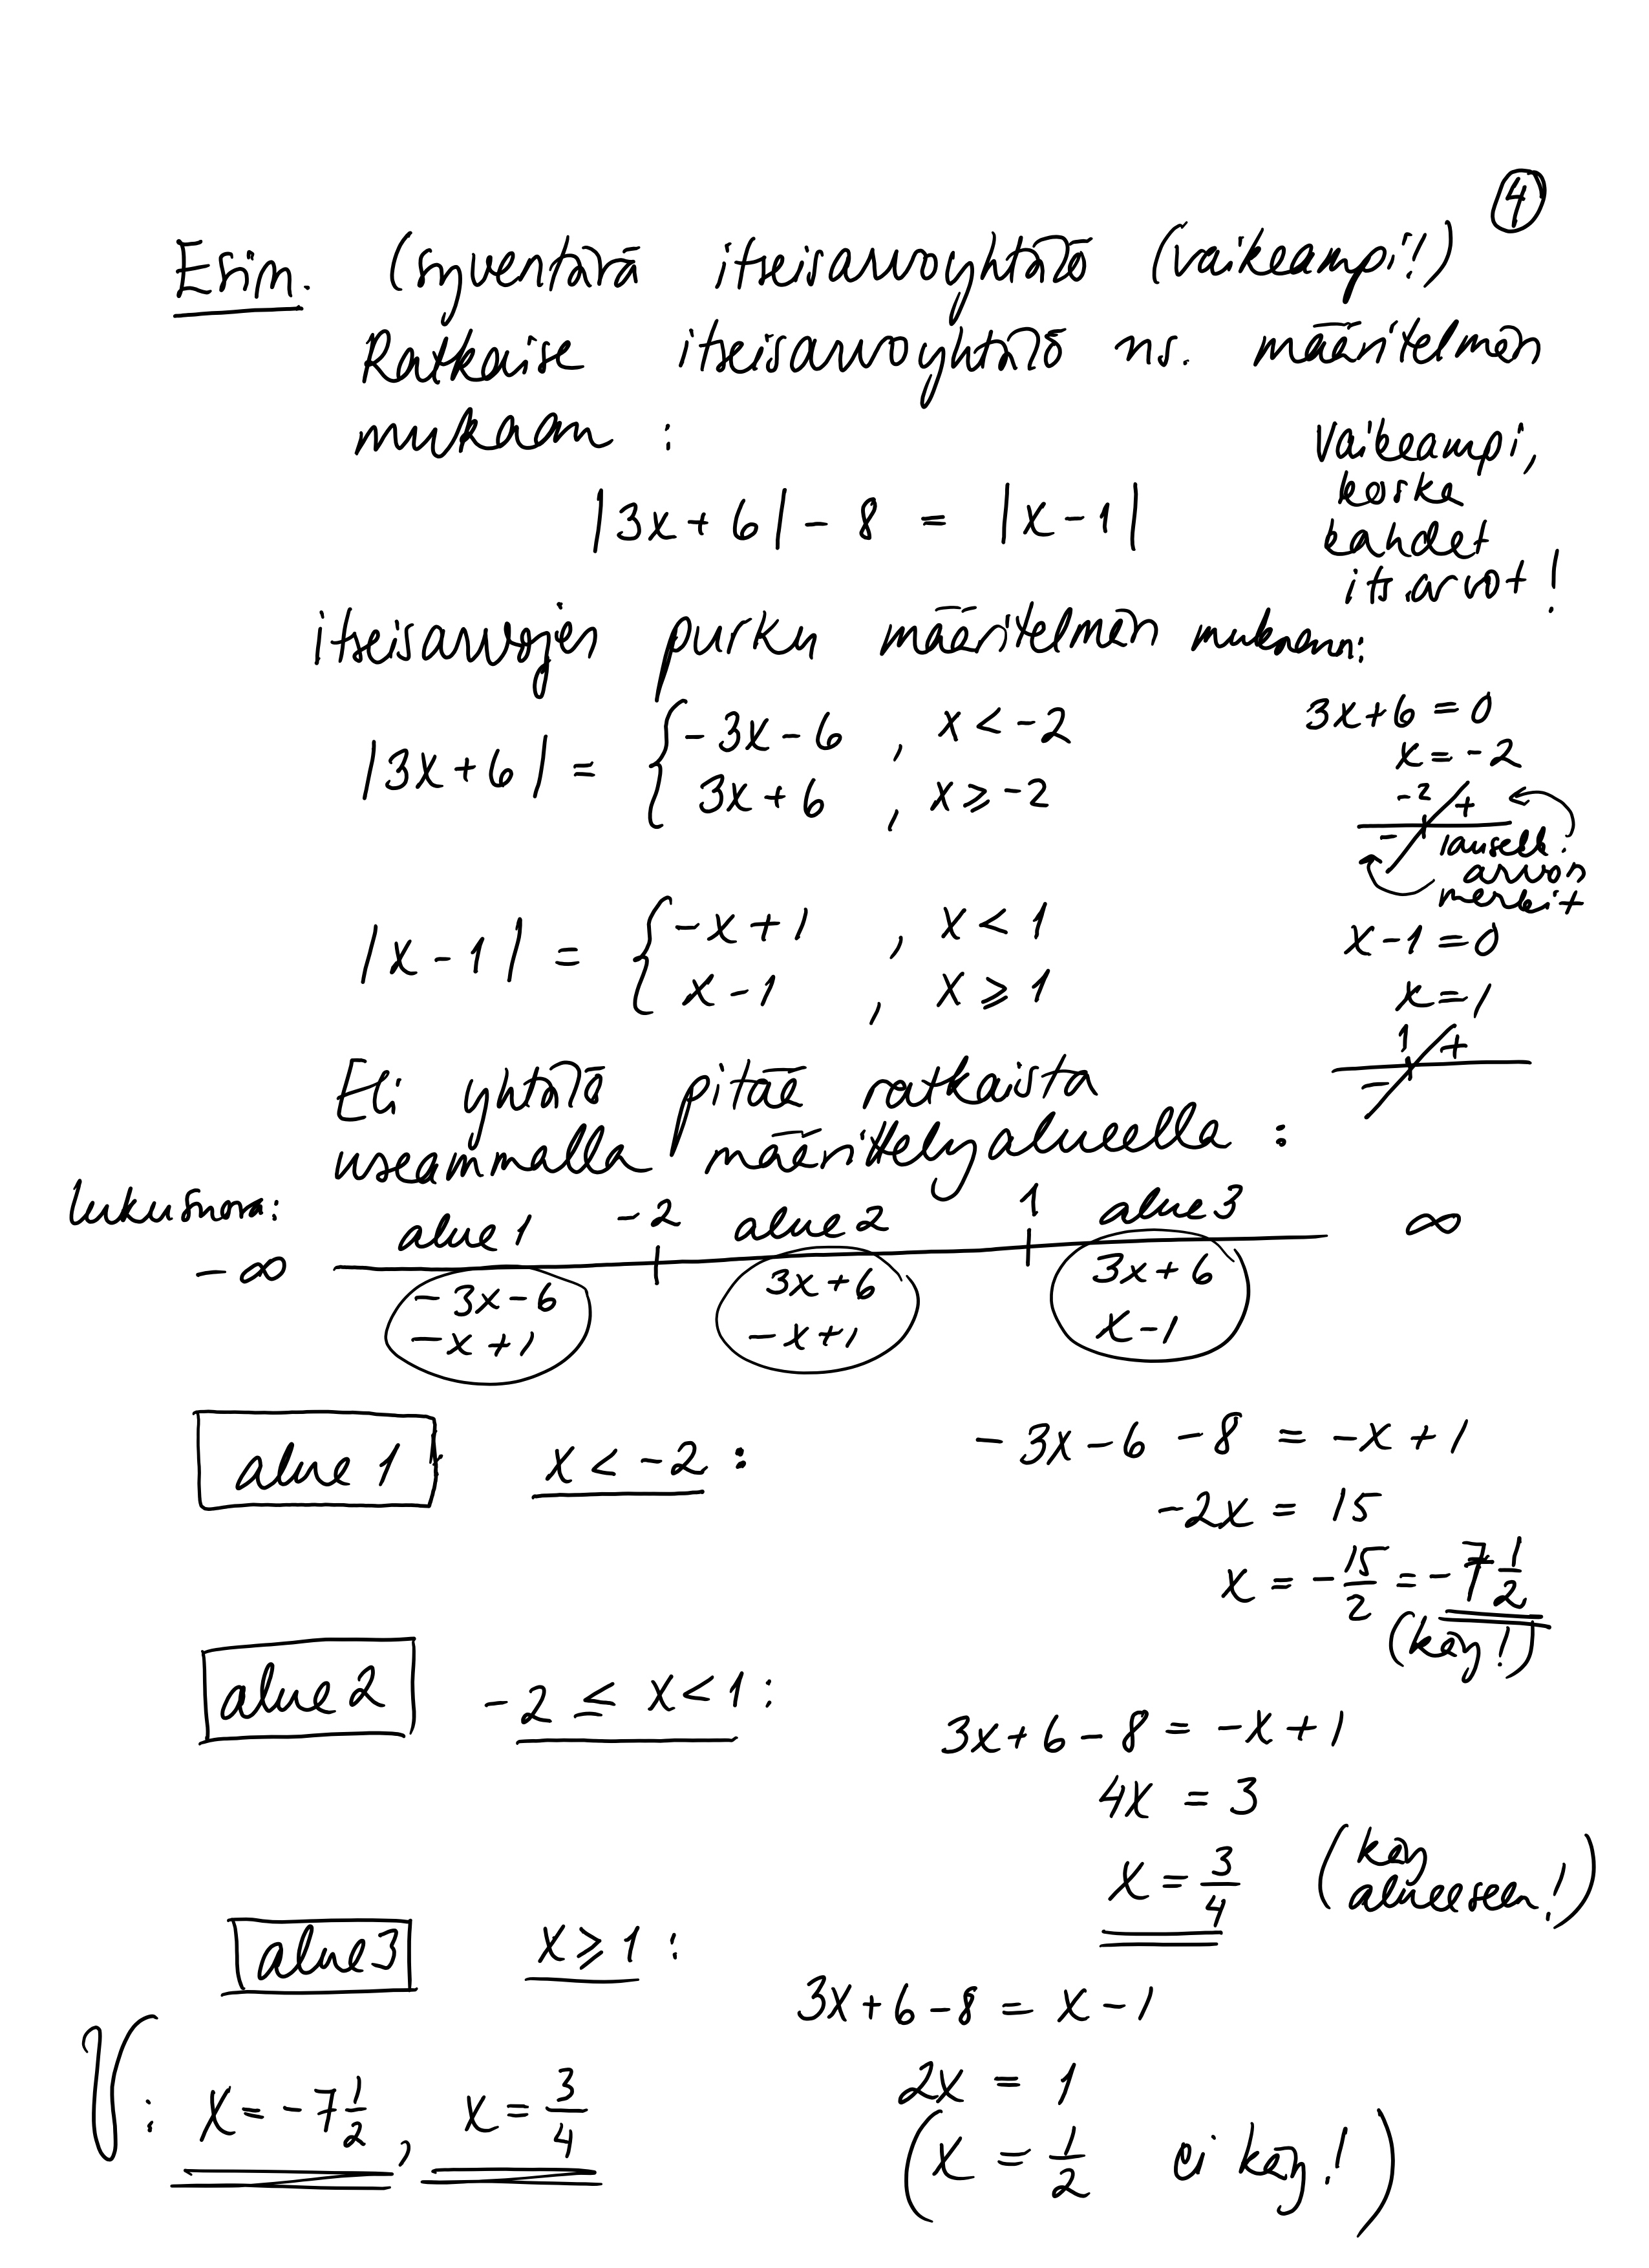 ④
Esim. (syventävä itseisarvoyhtälö (vaikeampi!)
Ratkaise itseisarvoyhtälö ns. määritelmän
mukaan :
|3x+6|-8 = |x-1|
Vaikeampi,
koska
kahdet
its.arvot!
itseisarvojen purku määritelmän mukaan:
|3x+6| = { -3x-6 , x < -2
3x+6 , x ≥ -2
3x+6 = 0
x = -2
-2 +
-
lausekk.
arvon
merkit
|x-1| = { -x+1 , x < 1
x-1 , x ≥ 1
x-1 = 0
x = 1
1 +
-
Eli yhtälö pitää ratkaista
useammalla määrittelyalueella :
lukusuora:
-∞ alue 1 -2 alue 2 1 alue 3 ∞
-3x-6 3x+6 3x+6
-x+1 -x+1 x-1
alue 1 x < -2 : -3x-6-8 = -x+1
-2x = 15
x = -15/2 = -7 1/2
(käy!)
alue 2 -2 ≤ x < 1 :
3x+6-8 = -x+1
4x = 3
x = 3/4 (käy alueeseen!)
alue 3 x ≥ 1 :
3x+6-8 = x-1
2x = 1
(x = 1/2 ei käy!)
V: x = -7 1/2 , x = 3/4